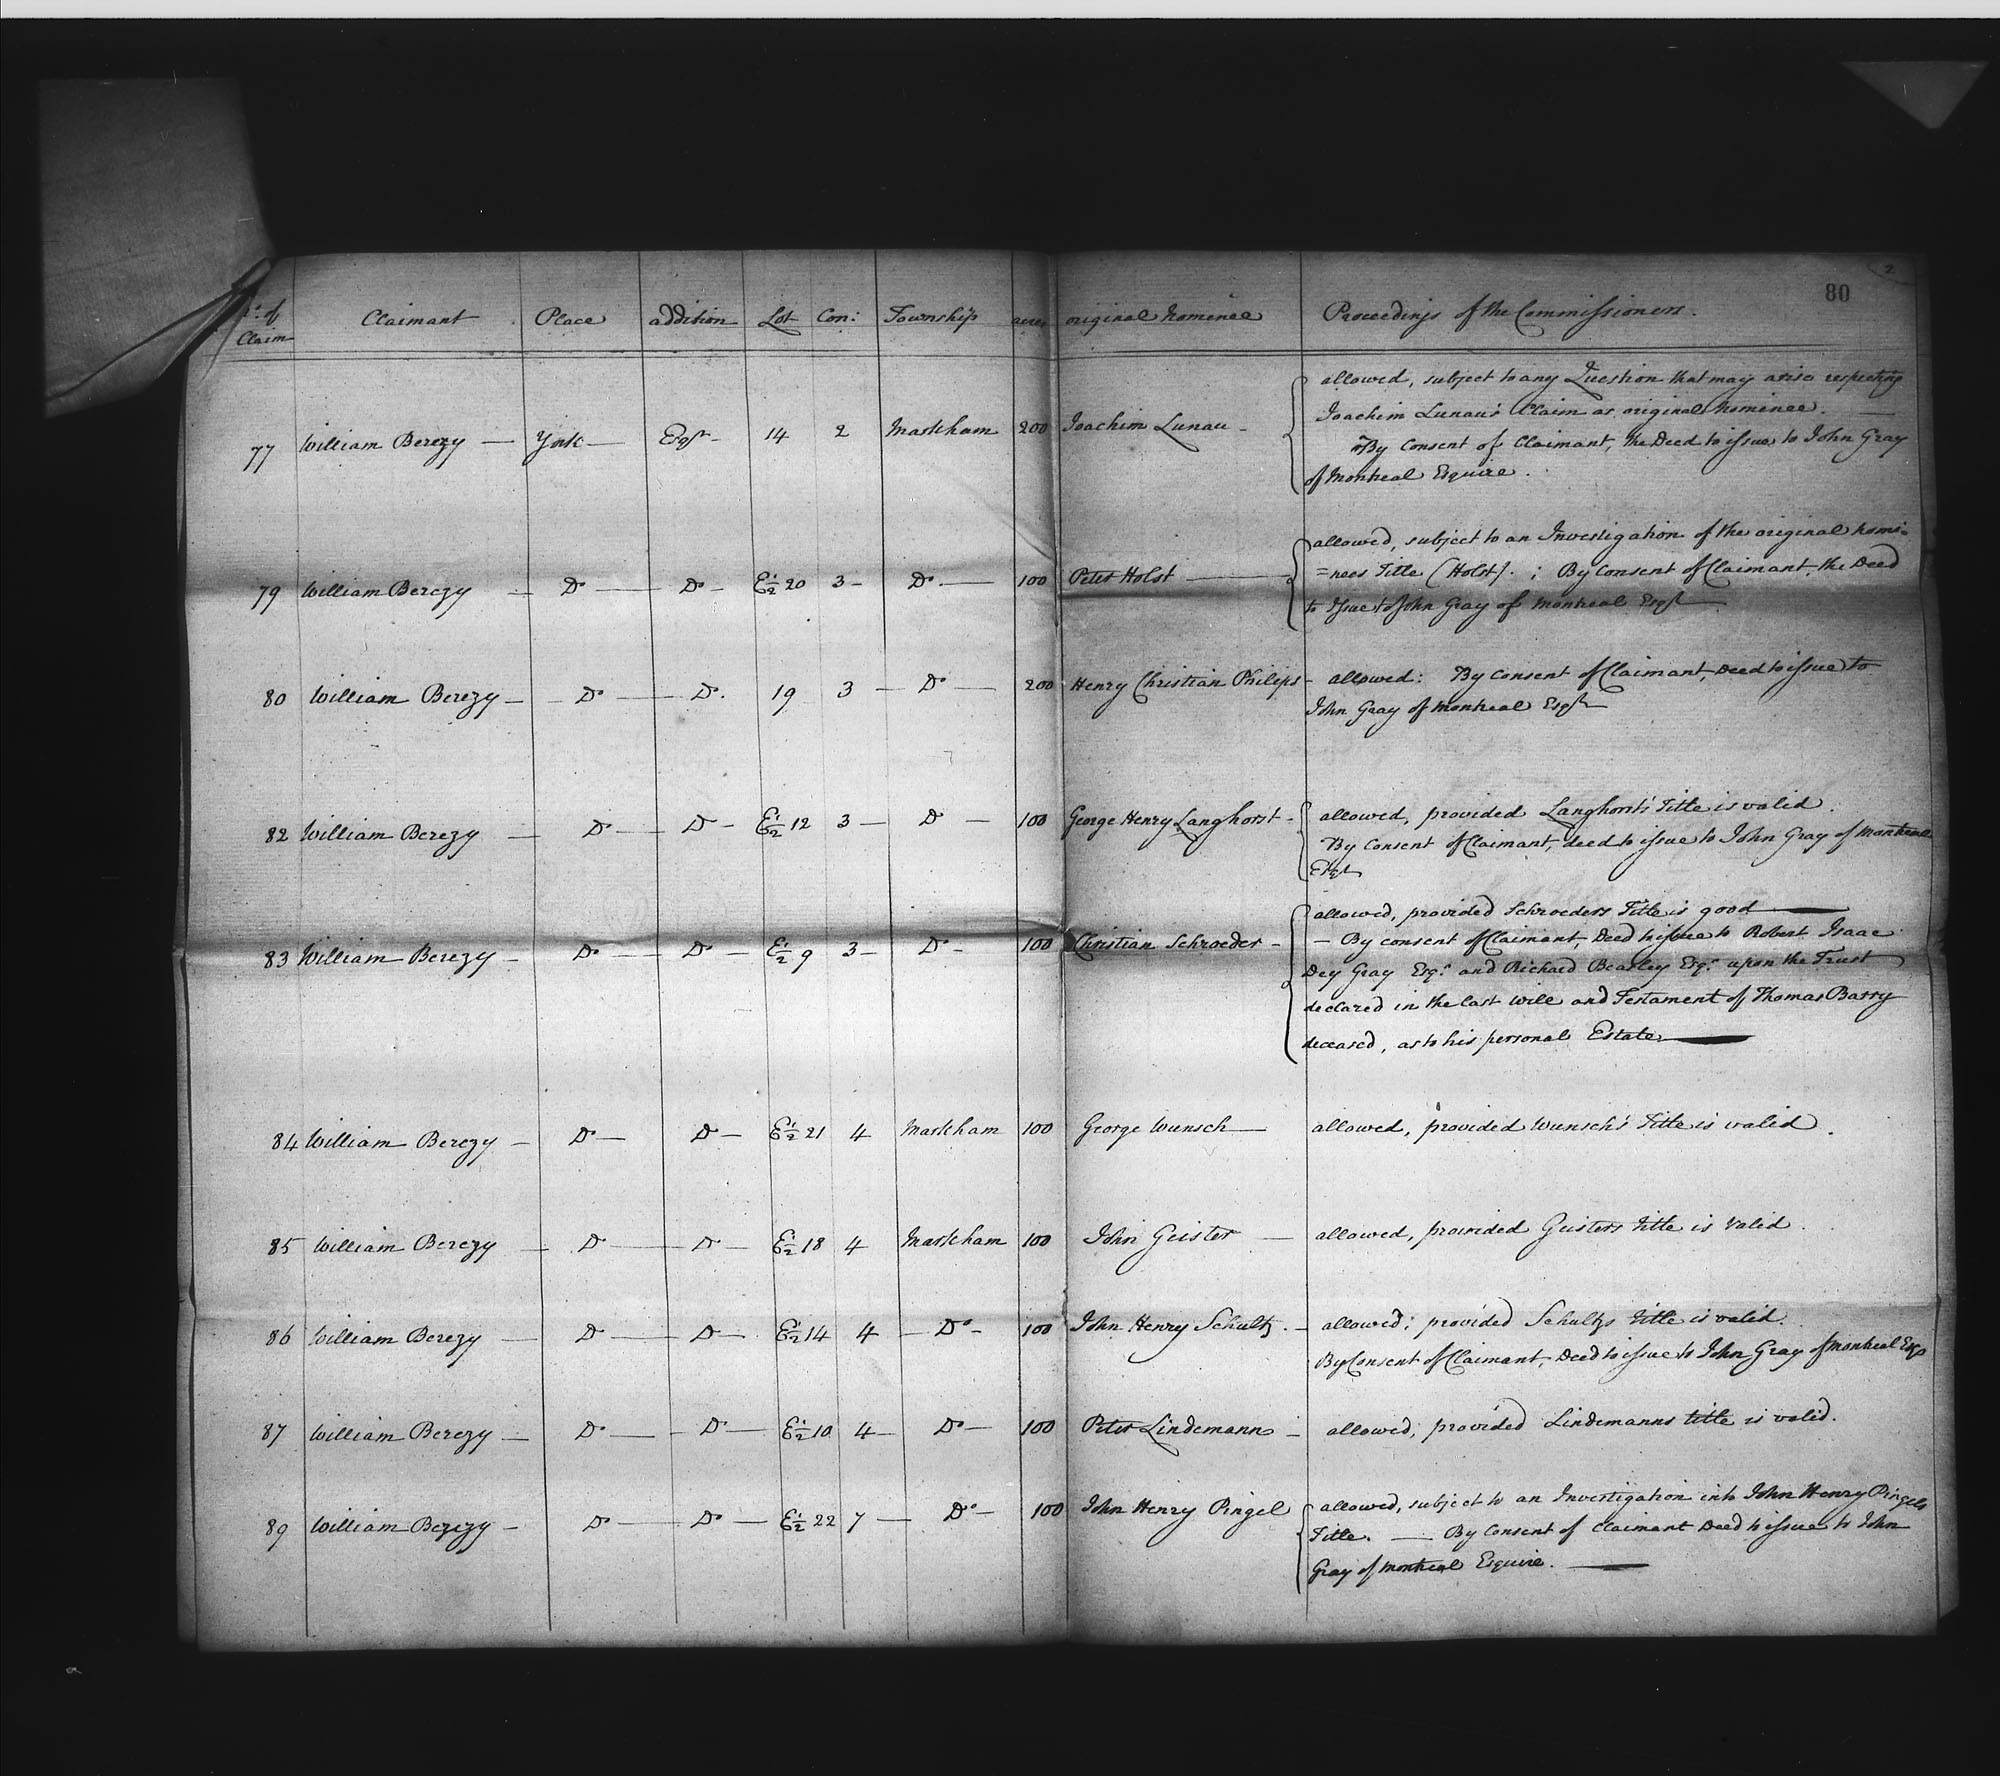 2
80
No. of Claim | Claimant | Place | addition | Lot | Con: | Township | acres | original Nominee | Proceedings of the Commissioners.
77 | William Berczy — | York — | Esqr - | 14 | 2 | Markham | 200 | Joachim Lunau - | allowed, subject to any Question that may arise respecting
Joachim Lunau's Claim as original Nominee. —
By Consent of Claimant, the Deed to issue to John Gray
of Montreal Esquire.
79 | William Berczy — | Do — | Do - | E½ 20 | 3 - | Do — | 100 | Peter Holst — | allowed, subject to an Investigation of the original Nomi-
=nees Title (Holst). ; By Consent of Claimant, the Deed
to Issue to John Gray of Montreal Esqr —
80 | William Berczy — | Do — | Do. | 19 | 3 — | Do — | 200 | Henry Christian Philips - | allowed: By Consent of Claimant, Deed to issue to
John Gray of Montreal Esqr —
82 | William Berczy — | Do — | Do — | E½ 12 | 3 — | Do — | 100 | George Henry Langhorst - | allowed, provided Langhorst's Title is valid.
By Consent of Claimant, deed to issue to John Gray of Montreal
Esqr
83 | William Berczy — | Do — | Do — | E½ 9 | 3 — | Do - | 100 | Christian Schroeder - | allowed, provided Schroeders Title is good —
— By consent of Claimant, Deed to issue to Robert Isaac
Dey Gray Esqr. and Richard Beasley Esqr. upon the Trust
declared in the last Will and Testament of Thomas Barry
deceased, as to his personal Estate. —
84 | William Berczy — | Do — | Do — | E½ 21 | 4 | Markham | 100 | George Wunsch — | allowed, provided Wunsch's Title is valid.
85 | William Berczy — | Do — | Do — | E½ 18 | 4 | Markham | 100 | John Geister — | allowed, provided Geisters Title is Valid.
86 | William Berczy — | Do — | Do — | E½ 14 | 4 | — Do - | 100 | John Henry Schultz. — | allowed; provided Schultzs Title is valid.
By Consent of Claimant, Deed to issue to John Gray of Montreal Esqr
87 | William Berczy — | Do — | Do — | E½ 10 | 4 — | Do — | 100 | Peter Lindemann — | allowed; provided Lindemanns title is valid.
89 | William Berczy — | Do — | Do — | E½ 22 | 7 — | Do — | 100 | John Henry Pingel | allowed, subject to an Investigation into John Henry Pingels
Title. — By Consent of Claimant Deed to issue to John
Gray of Montreal Esquire. —